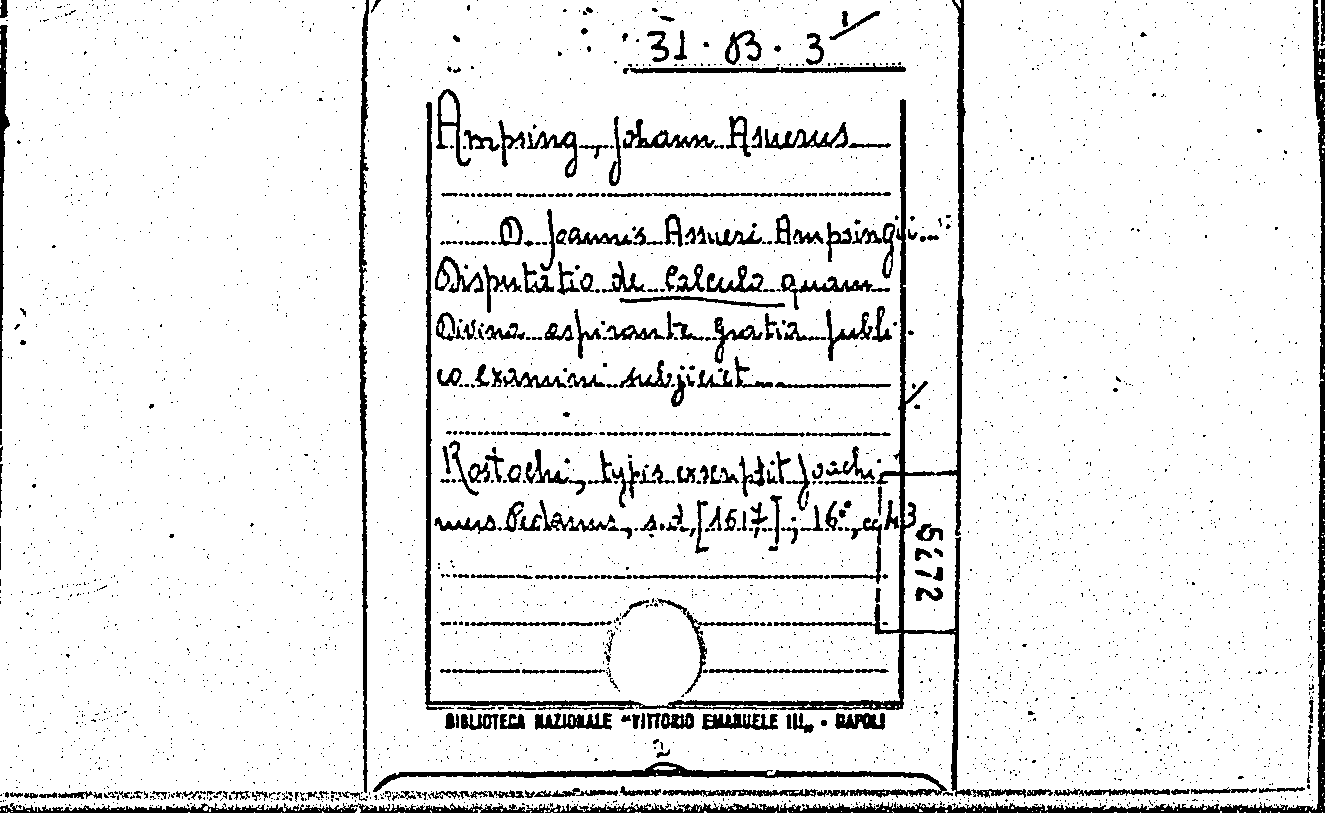 31. B. 3 1/
Ampsing, Johann Asuerus
D. Joannis Assueri Ampsingii
Disputatio de Calculo quam
Divina aspirante gratia publi-
co examini subjiciet
Rostochi, typis exscripsit Joachi-
mus Pedanus, s.d. [1617]; 16°, cc
5272
BIBLIOTECA NAZIONALE "VITTORIO EMANUELE III„ - NAPOLI
2